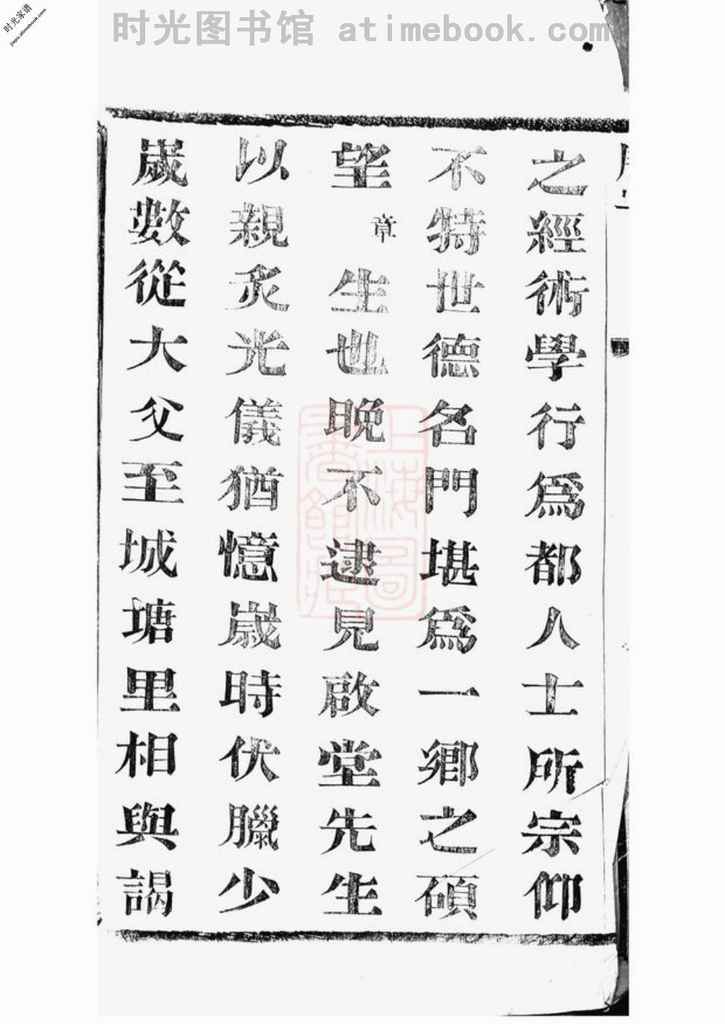 时光图书馆 atimebook.com
时光家谱
之經術學行爲都人士所宗仰
不特世德名門堪爲一鄉之碩
望章生也晚不逮見啟堂先生
以親炙光儀猶憶歲時伏臘少
歲數從大父至城塘里相與謁